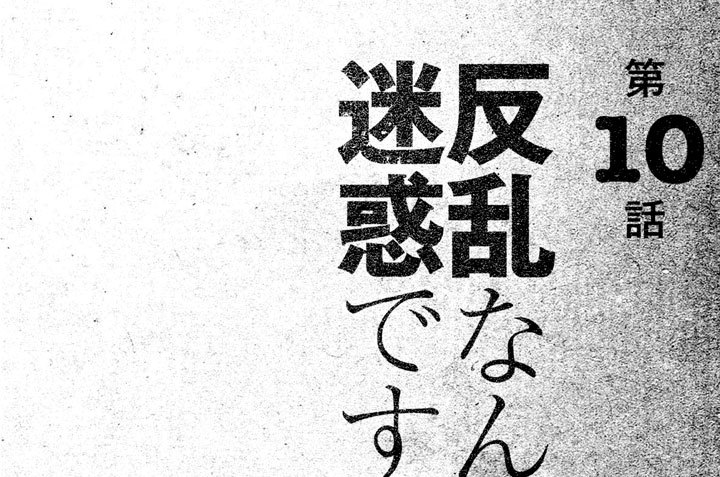 第10話
反乱なん
迷惑です